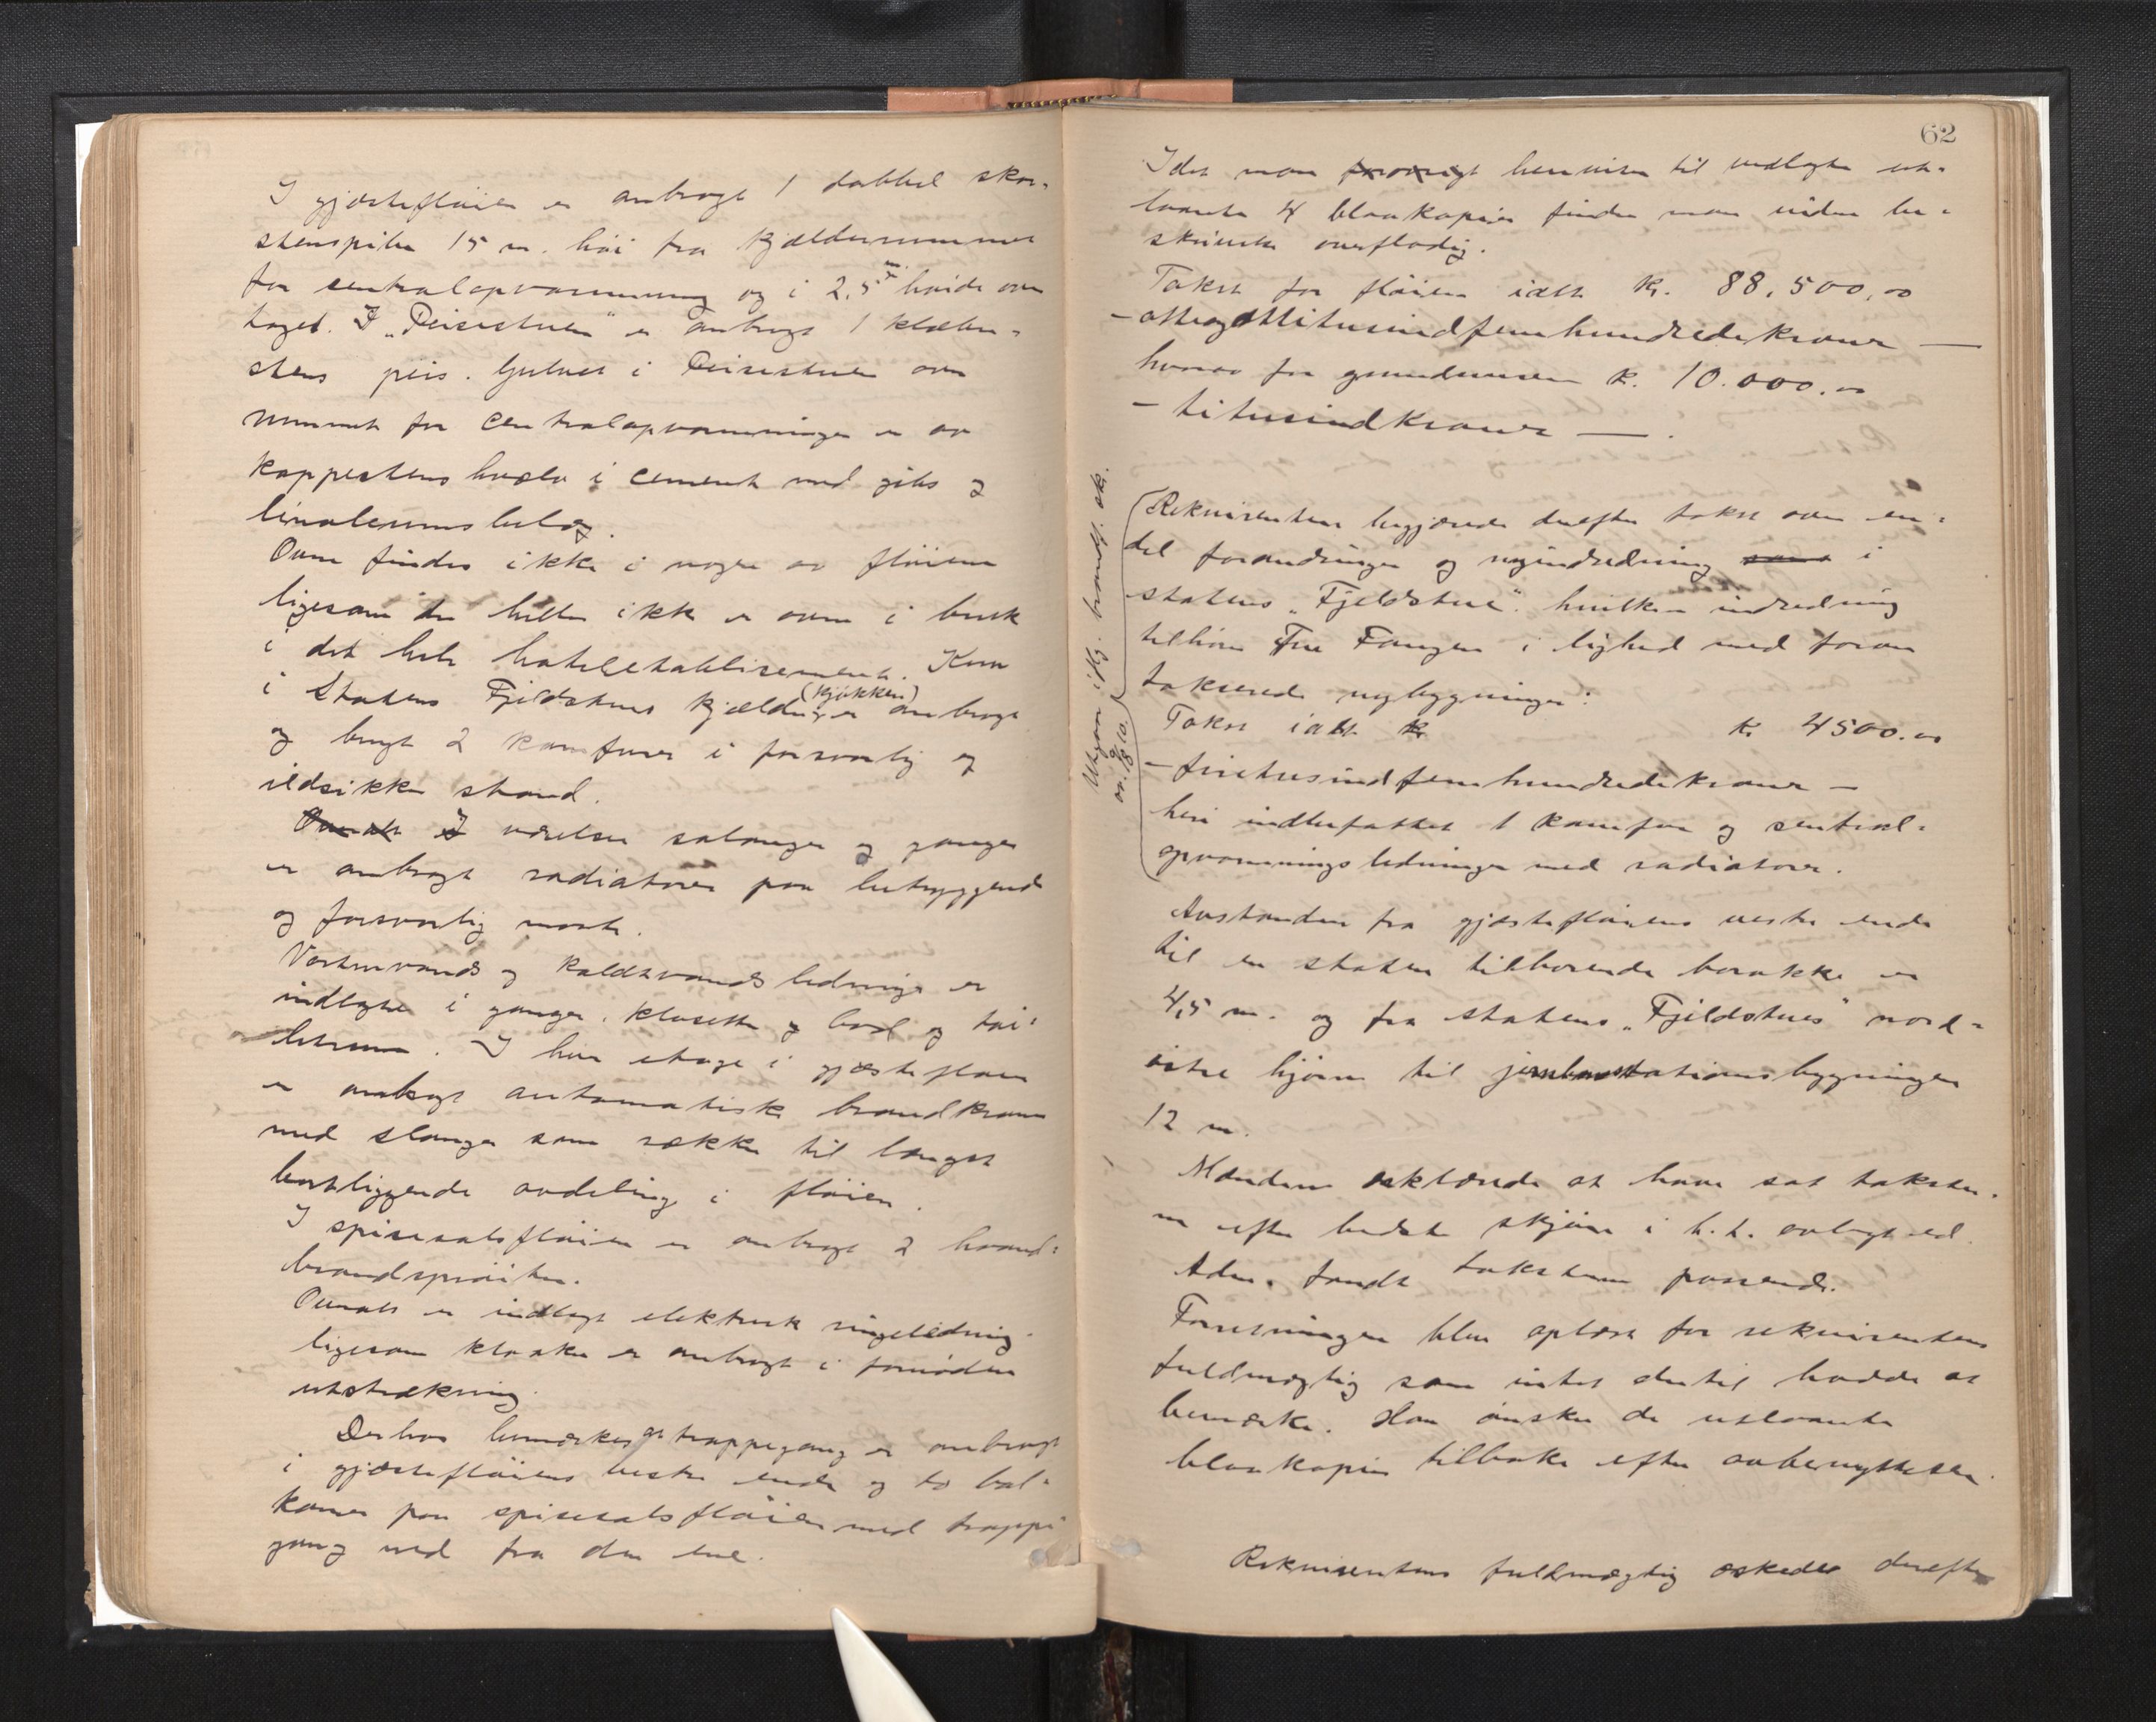 I gjæstefløien er anbragt 1 dobbel skor-
stenspibe 15 m. høi fra kjælderrummet
for sentralopvarmning og i 2,5 m høide over
taget. I „Peisestuen" er anbragt 1 klæber-
stens peis. Gulvet i Peisestuen over
rummet for centralopvarmningen er av
koppestens hvælv i cement med gibs og
linoleumsbelæg.
Ovne findes ikke i nogen av fløiene
ligesom der heller ikke er ovne i bruk
i det hele hoteletablissement. Kun
i Statens Fjeldstues kjælder (kjøkken) er anbragt
og brugt 2 komfurer i forsvarlig og
ildsikker stand.
I værelser salonger og ganger
er anbragt radiatorer paa betryggende
og forsvarlig maate.
Varmtvands og koldtvands ledninger er
indlagte i ganger, klosetter og bad og toi-
letrum. I hver etage i gjæstefløien
er anbragt automatiske brandkraner
med slanger som rækker til længst
bortliggende avdeling i fløien.
I spisesalsfløien er anbragt 2 haand-
brandsprøiter.
Overalt er indlagt elektrisk ringeledning
ligesom klokker er anbragt i fornøden
utstrækning.
Derhos bemerkes at trappegang er anbragt
i gjæstefløiens vestre ende og to bal-
koner paa spisesalsfløien med trappe
gang ned fra den ene.
62
Idet man forøvrigt henviser til vedlagte ut-
laante 4 blaakopier finder man videre be-
skrivelse overflødig.
Takst for fløien ialt kr. 88.500,00
- otteogottitusindfemhundredekroner -
hvorav for grundmuren k. 10.000.00
- titusindkroner - .
Rekvirenten begjærede derefter takst over en-
del forandringer og nyindredning som i
statens „Fjeldstue". hvilken indredning
tilhører Fru Fangen i lighed med foran
takserede nybygninger:
Takst ialt kr kr 4500.00
- firetusindfemhundredekroner -
heri indbefattet 1 komfur og sentral-
opvarmningsledninger med radiatorer.
Utgaar iflg. brandf. sk.
av 18/9 10.
Avstanden fra gjæstefløiens vestre ende
til en staten tilhørende barakke er
4,5 m. og fra statens „Fjeldstues" nord-
østre hjørne til jernbanestationsbygningen
12 m.
Mændene erklærede at have sat takster-
ne efter bedste skjøn i h. t. avlagt ed.
Adm. fandt taksterne passende.
Forretningen blev oplæst for rekvirentens
fuldmægtig som intet dertil hadde at
bemerke. Han ønsker de utlaante
blaakopier tilbake efter avbenyttelsen.
Rekvirentens fuldmægtig æskedes derefter